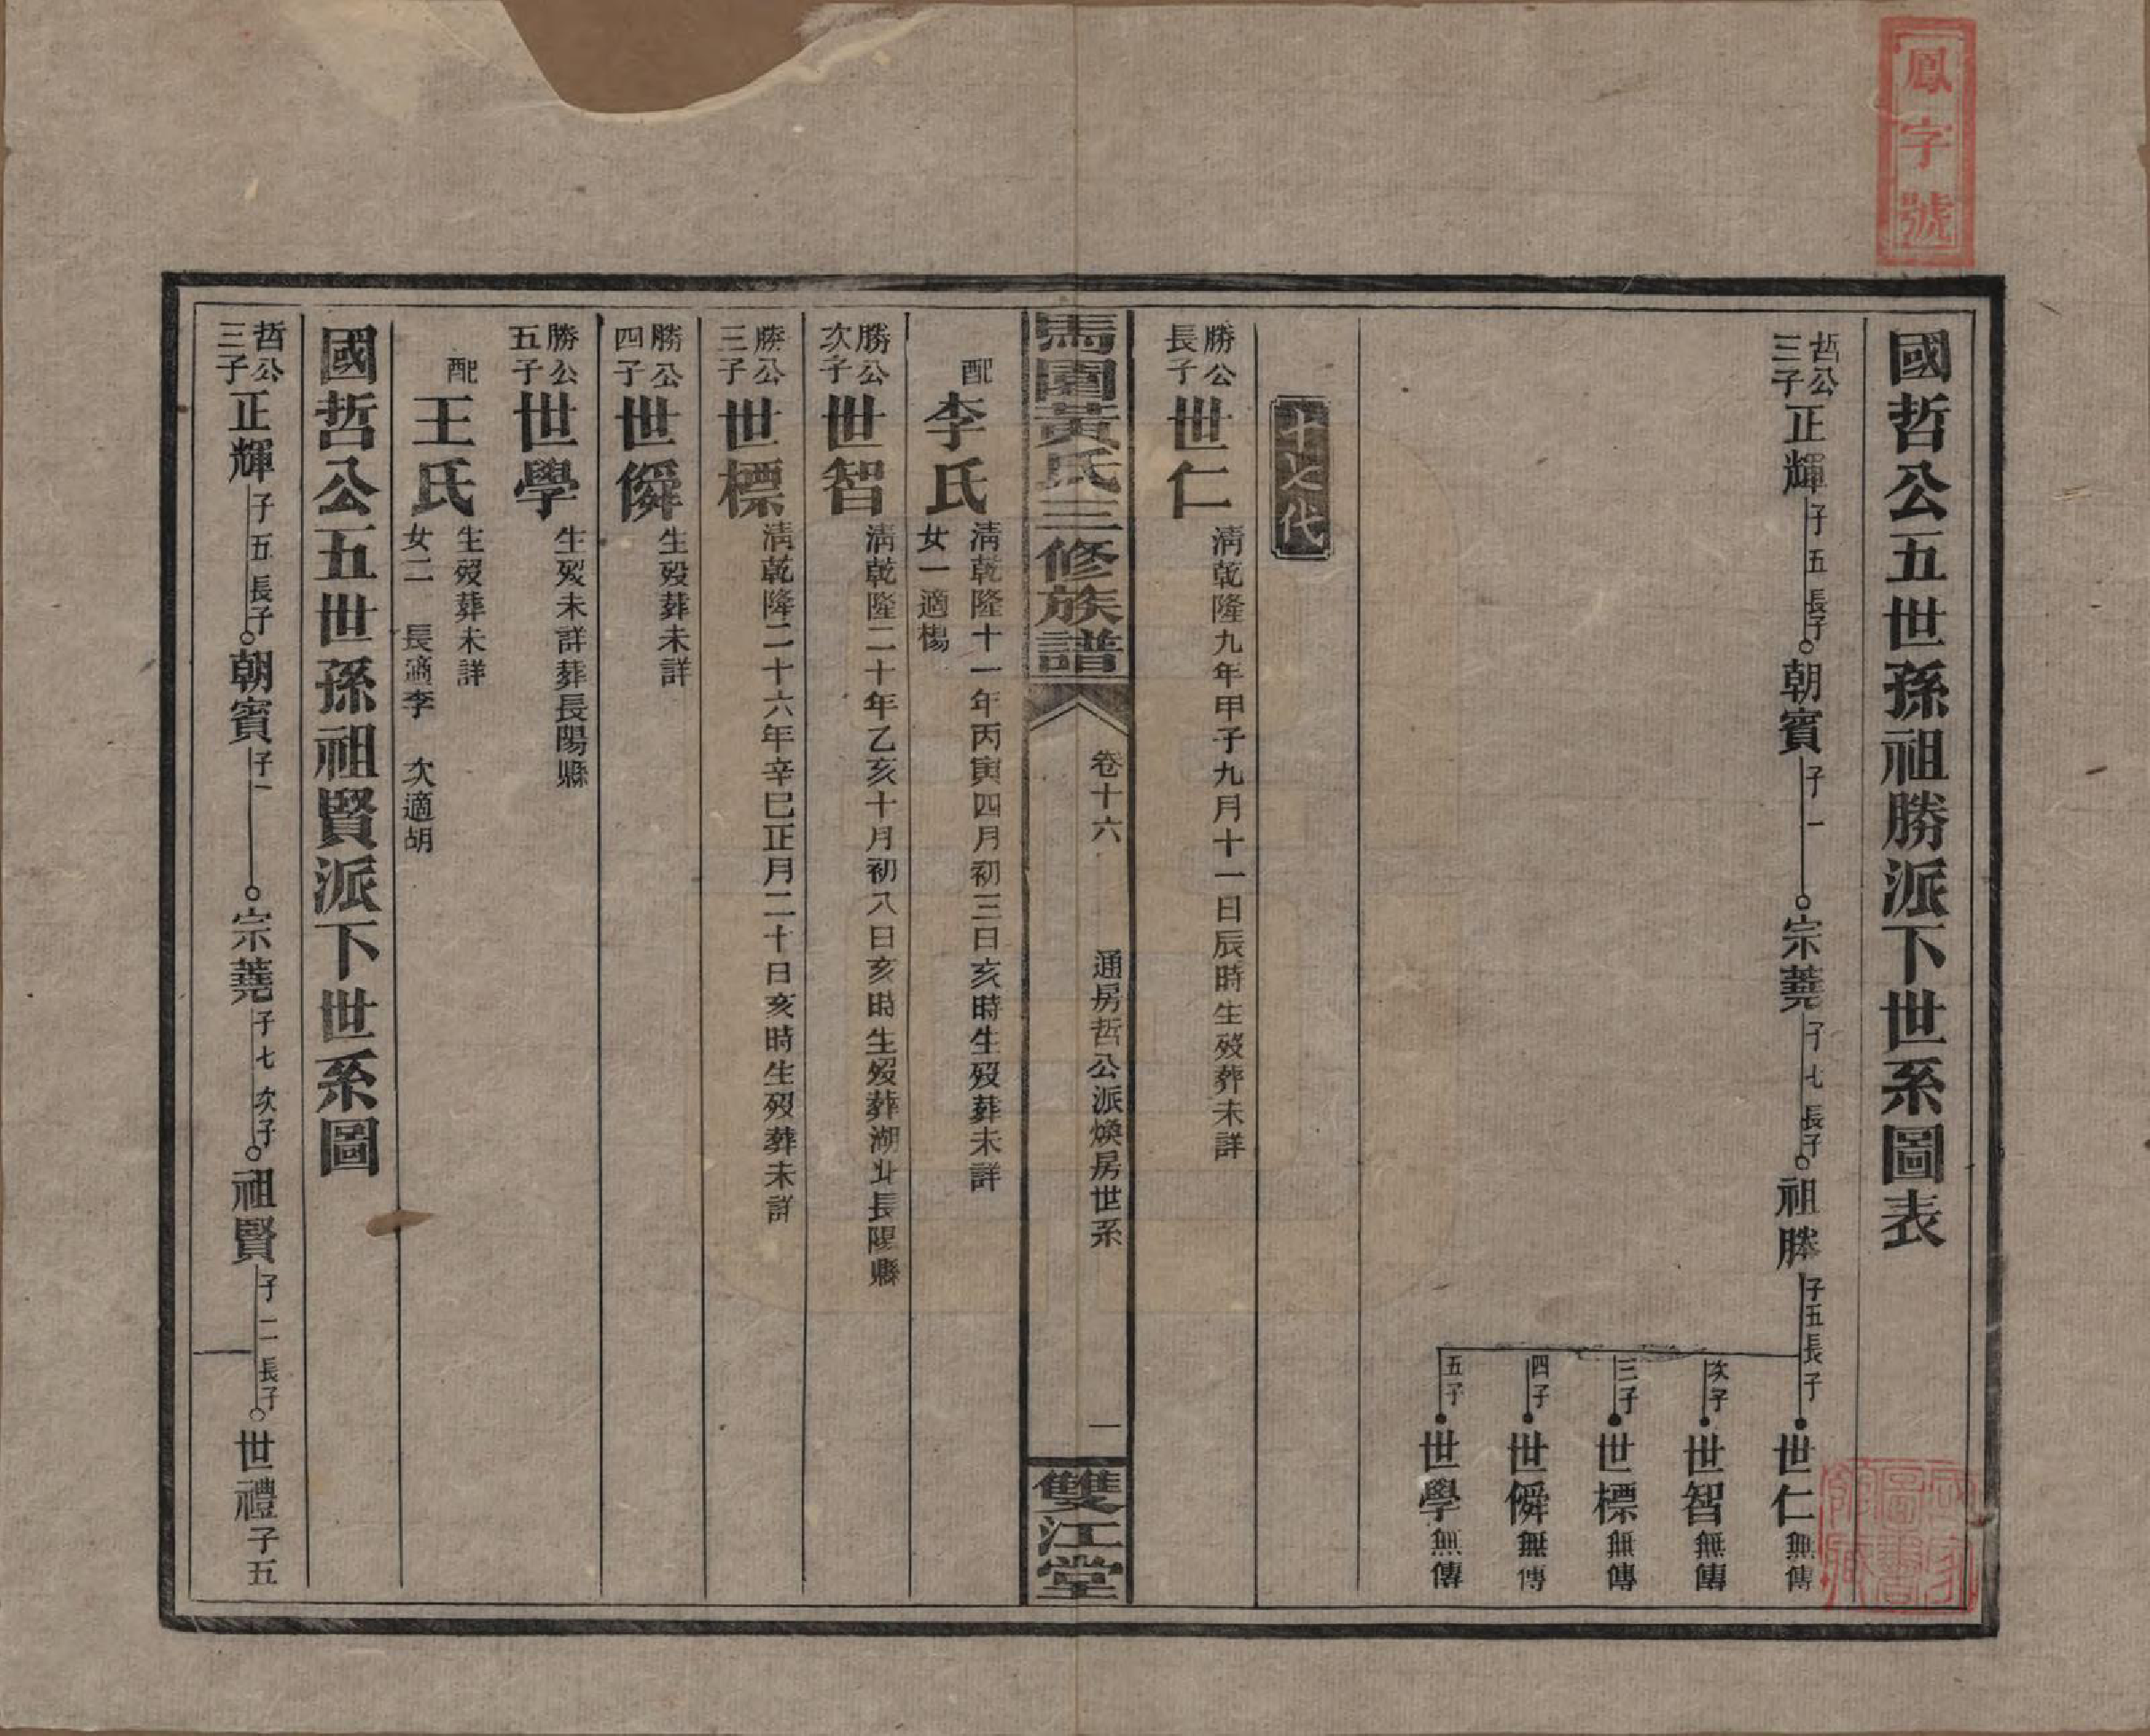 鳳字號
國哲公五世孫祖勝派下世系圖表
哲公三子正輝子五長子朝賓子一宗蕘子七長子祖勝子五長子世仁無傳
次子世智無傳
三子世標無傳
四子世僢無傳
五子世學無傳
十七代
勝公長子世仁清乾隆九年甲子九月十一日辰時生歿葬未詳
馬園黃氏三修族譜
卷十六
通房哲公派煥房世系
一
雙江堂
配李氏清乾隆十一年丙寅四月初三日亥時生歿葬未詳
女一適楊
勝公次子世智清乾隆二十年乙亥十月初八日亥時生歿葬湖北長陽縣
勝公三子世標清乾隆二十六年辛巳正月二十日亥時生歿葬未詳
勝公四子世僢生歿葬未詳
勝公五子世學生歿未詳葬長陽縣
配王氏生歿葬未詳
女二 長適李 次適胡
國哲公五世孫祖賢派下世系圖
哲公三子正輝子五長子朝賓子一宗蕘子七次子祖賢子二長子世禮子五